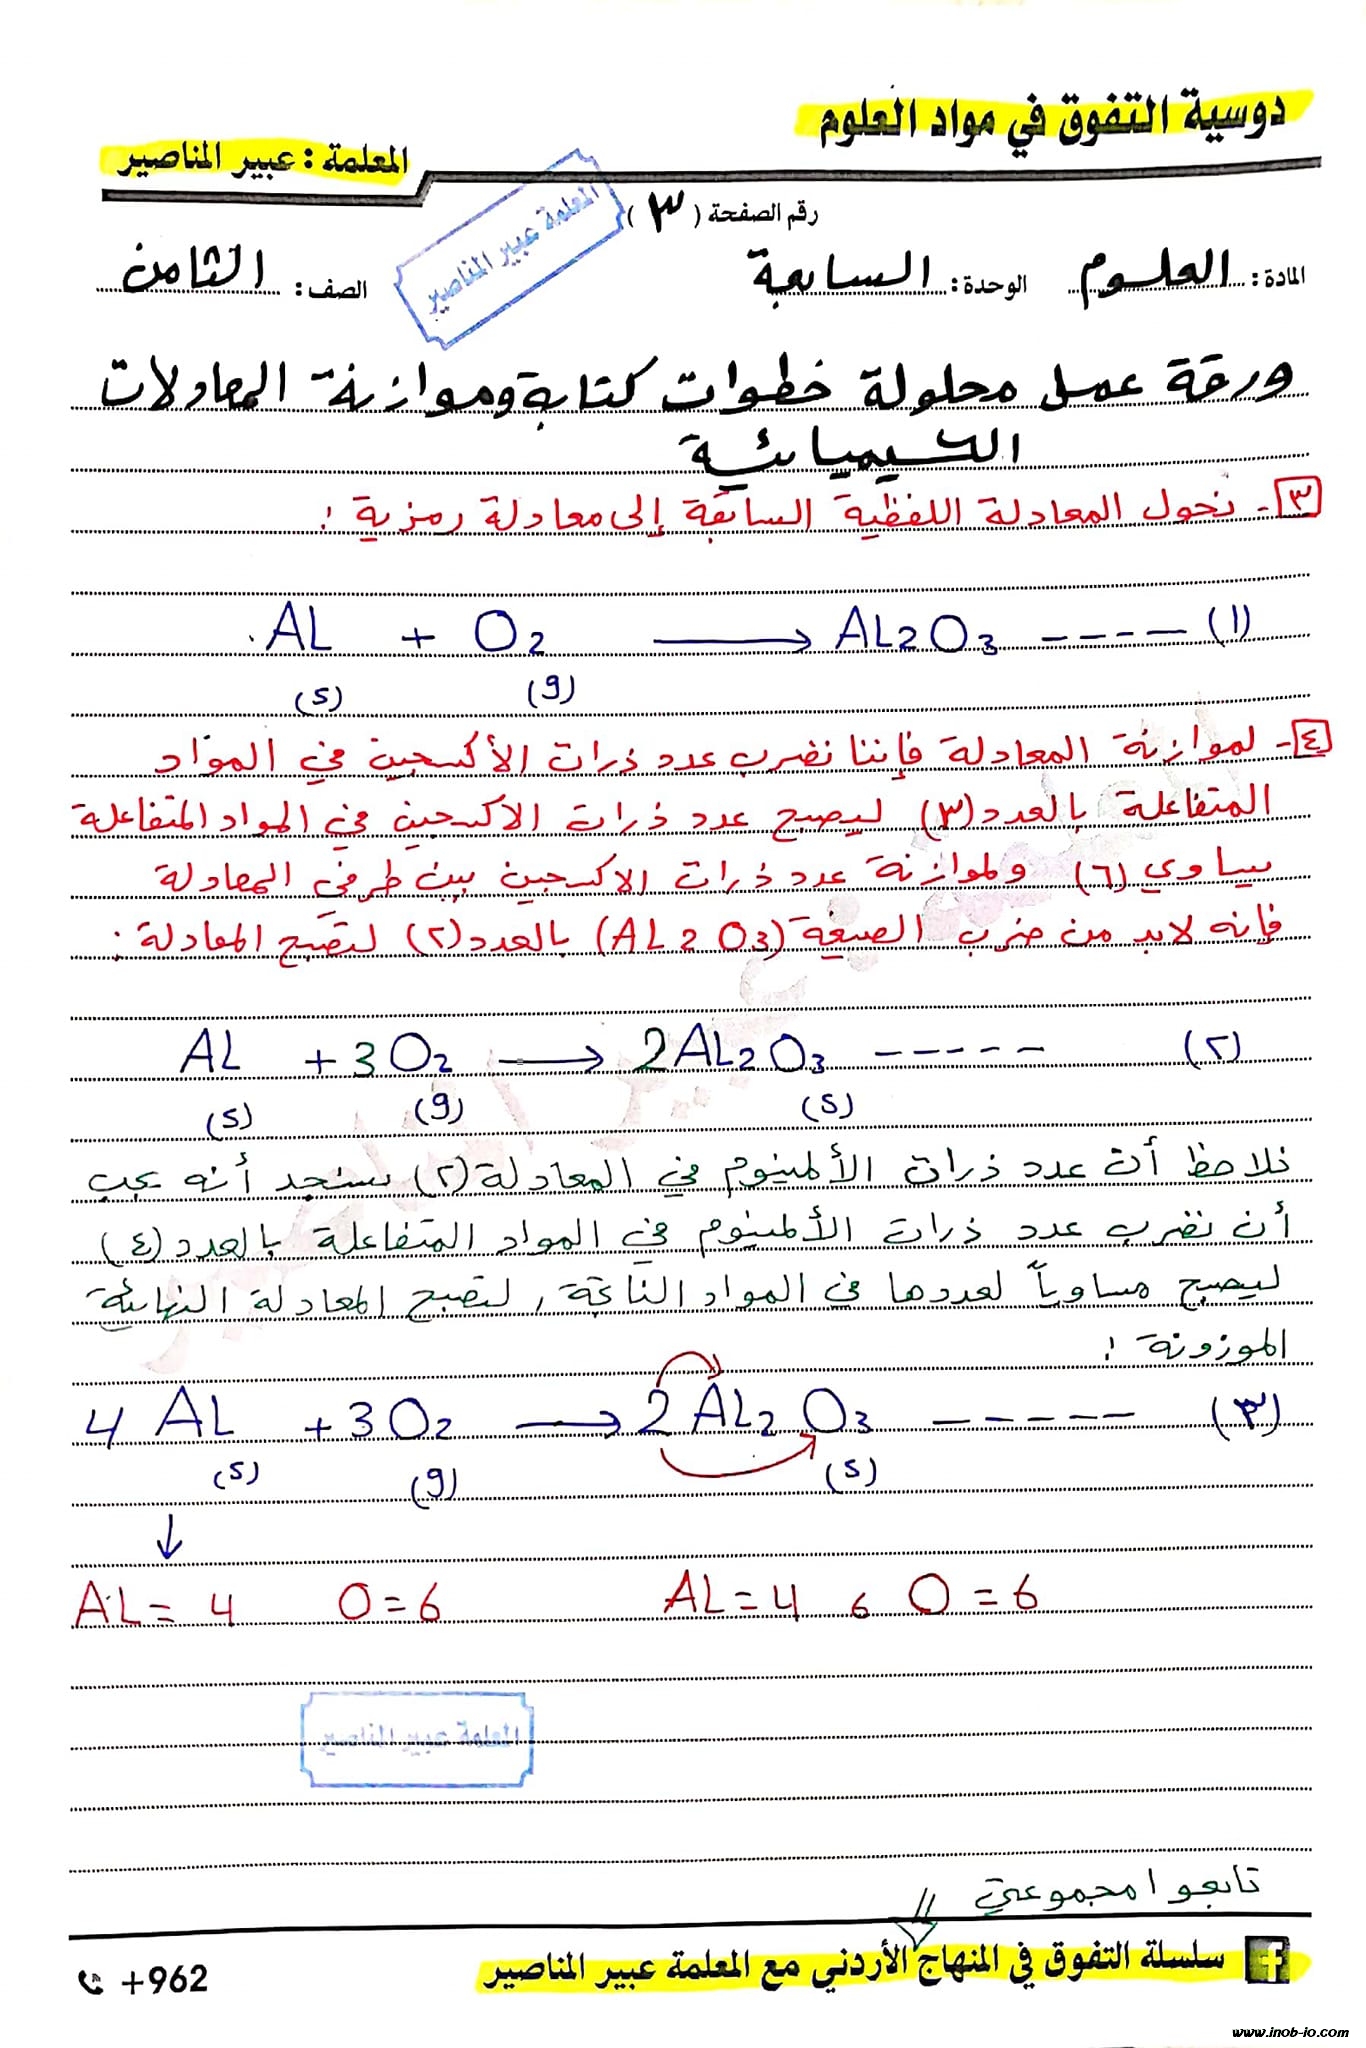 دوسية التفوق في مواد العلوم
المعلمة : عبير المناصير
رقم الصفحة ( ٣ )
المعلمة عبير المناصير
المادة : العلوم الوحدة : السابعة الصف : الثامن
ورقة عمل محلولة خطوات كتابة وموازنة المعادلات
الكيميائية
٣- نحول المعادلة اللفظية السابقة إلى معادلة رمزية :
AL + O2 ⟶ AL2O3 ----- (١)
(s) (g)
٤- لموازنة المعادلة فإننا نضرب عدد ذرات الأكسجين في المواد
المتفاعلة بالعدد (٣) ليصبح عدد ذرات الاكسجين في المواد المتفاعلة
يساوي (٦) ولموازنة عدد ذرات الاكسجين بين طرفي المعادلة
فإنه لابد من ضرب الصيغة (AL2O3) بالعدد (٢) لتصبح المعادلة :
AL + 3O2 ⟶ 2AL2O3 ----- (٢)
(s) (g) (s)
نلاحظ أن عدد ذرات الألمنيوم في المعادلة (٢) سنجد أنه يجب
أن نضرب عدد ذرات الألمنيوم في المواد المتفاعلة بالعدد (٤)
ليصبح مساوياً لعددها في المواد الناتجة , لتصبح المعادلة النهائية
الموزونة :
4 AL + 3O2 ⟶ 2AL2O3 ----- (٣)
(s) (g) (s)
↓
AL = 4 O = 6 AL = 4 , O = 6
المعلمة عبير المناصير
تابعوا مجموعتي
سلسلة التفوق في المنهاج الأردني مع المعلمة عبير المناصير
+962
www.inob-io.com